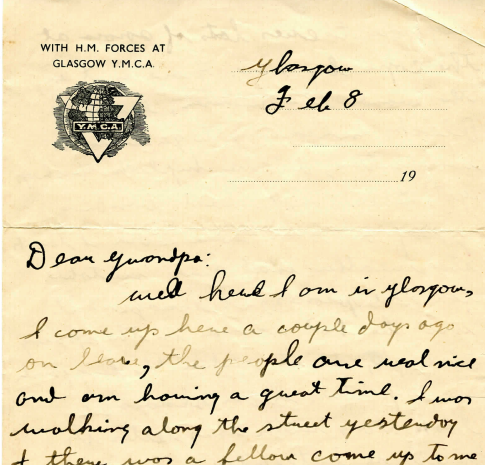 WITH H.M. FORCES AT
GLASGOW Y.M.C.A.
Y.M.C.A.
Glasgow
Feb 8
19
Dear Grandpa:
well here I am in Glasgow,
I come up here a couple days ago
on leave, the people are real nice
and am having a great time. I was
walking along the street yesterday
& there was a fellow come up to me